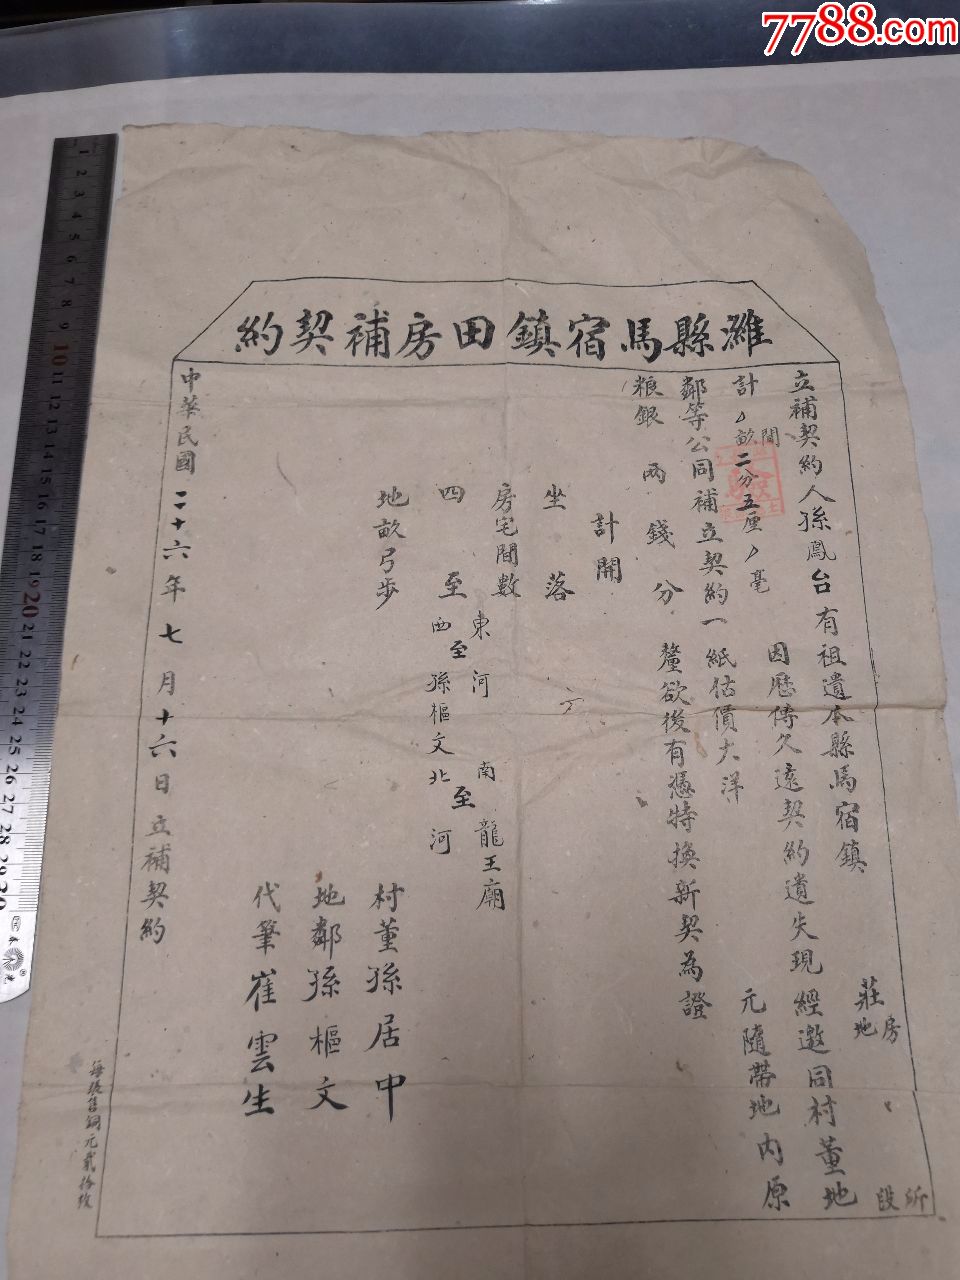 7788.com
濰縣馬宿鎮田房補契約
立補契約人孫鳳台有祖遺本縣馬宿鎮 莊 房地 所段
計 畝間二分五厘 毫 因歷傳久遠契約遺失現經邀同村董地
鄰等公同補立契約一紙估價大洋 元隨帶地內原
粮銀 兩 錢 分 釐欲後有憑特換新契為證
計開
坐落
房宅間數
四至 東河 南龍王廟
西至孫樞文 北至河
地畝弓步
村董孫居中
地鄰孫樞文
代筆崔雲生
中華民國二十六年七月十六日立補契約
每張售銅元貳拾枚
1 2 3 4 5 6 7 8 9 10 11 12 13 14 15 16 17 18 19 20 21 22 23 24 25 26 27 28 29 30